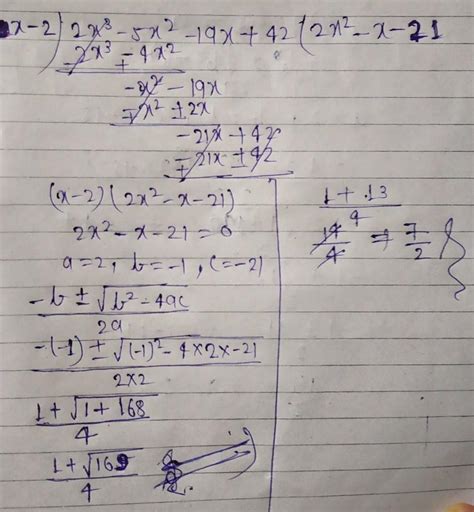 x-2) 2x³ - 5x² - 19x + 42 (2x² - x - 21
2x³ - 4x²
- +
-x² - 19x
∓x² ± 2x
-21x + 42
∓21x ± 42
(x-2) (2x² - x - 21)
2x² - x - 21 = 0
a = 2, b = -1, c = -21
-b ± √b² - 4ac
2a
-(-1) ± √(-1)² - 4×2×-21
2×2
1 + √1 + 168
4
1 + √169
4
1 + 13
4
14/4 ⇒ 7/2